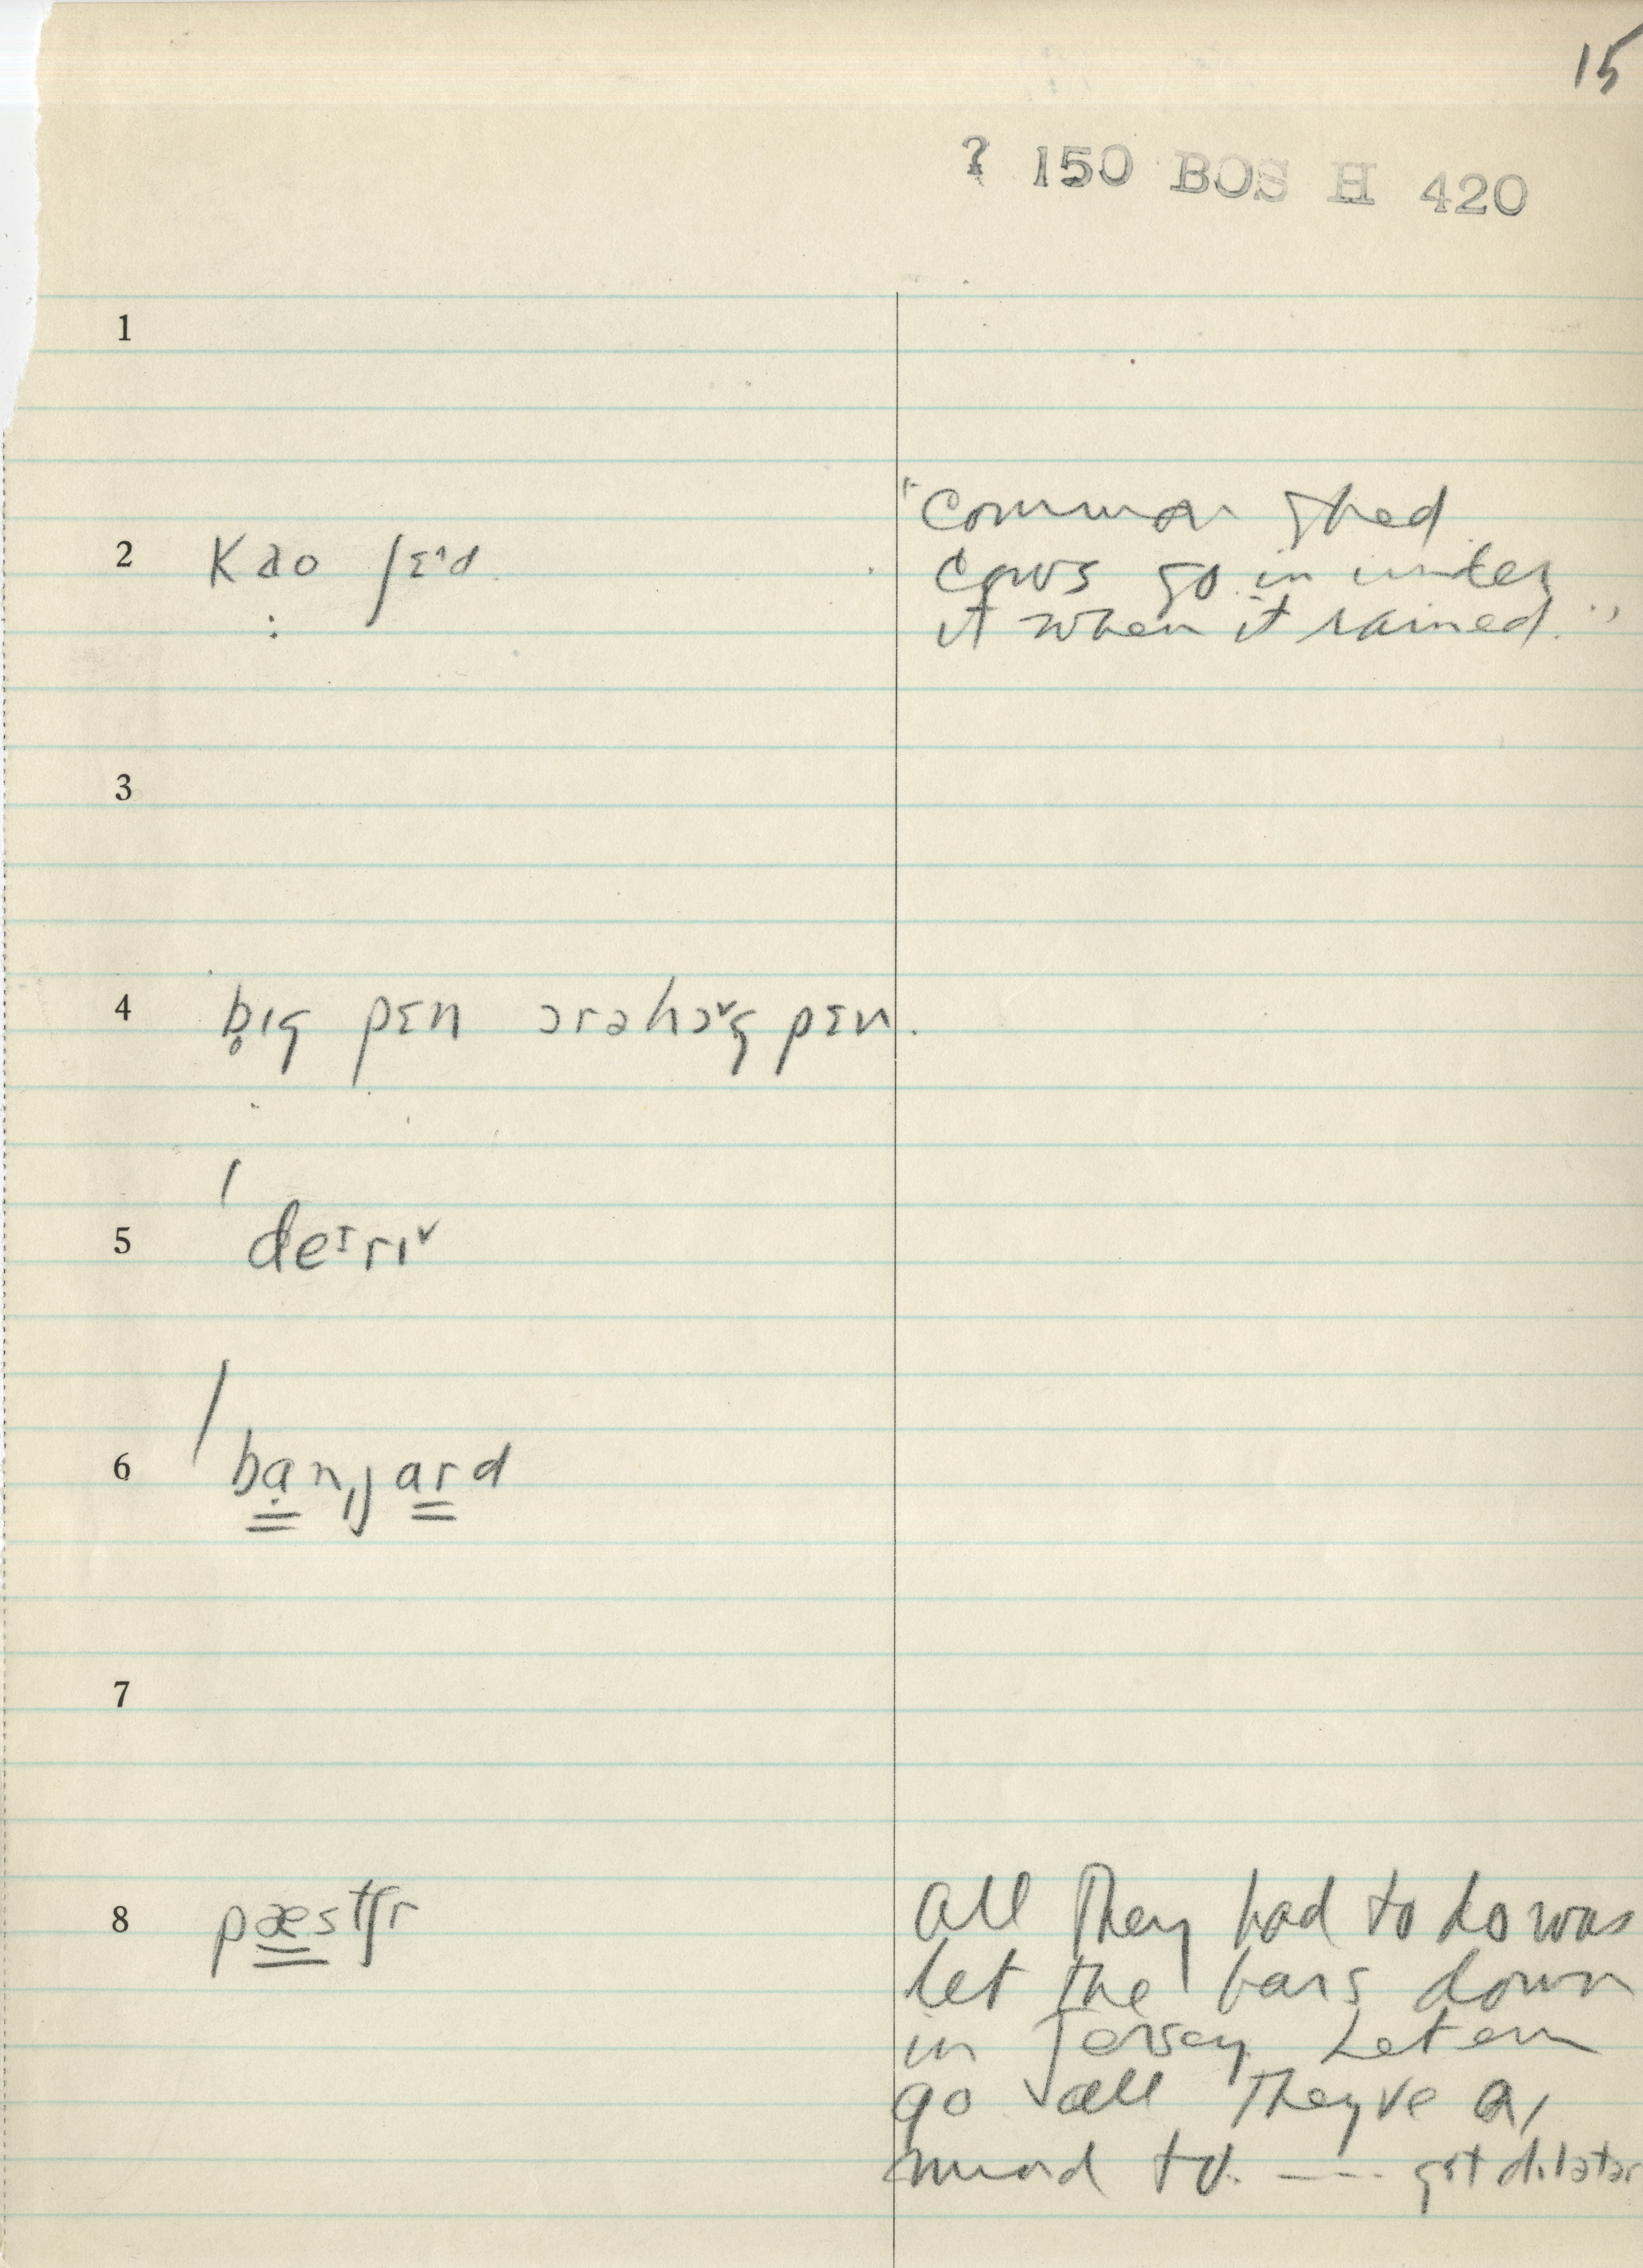 15
? 150 BOS H 420
1
"common shed
2 kao ʃɛˑd
cows go in under
it when it rained."
3
4 b̥ɪg pɛn ɔrəhɔˇg̥ pɛn.
5 ˈdeɪrɪˇ
6 ˈbạnˌjard
7
8 pæstʃr
all they had to do was
let the bars down
in Jersey Let em
go all They've a
mind to. ---